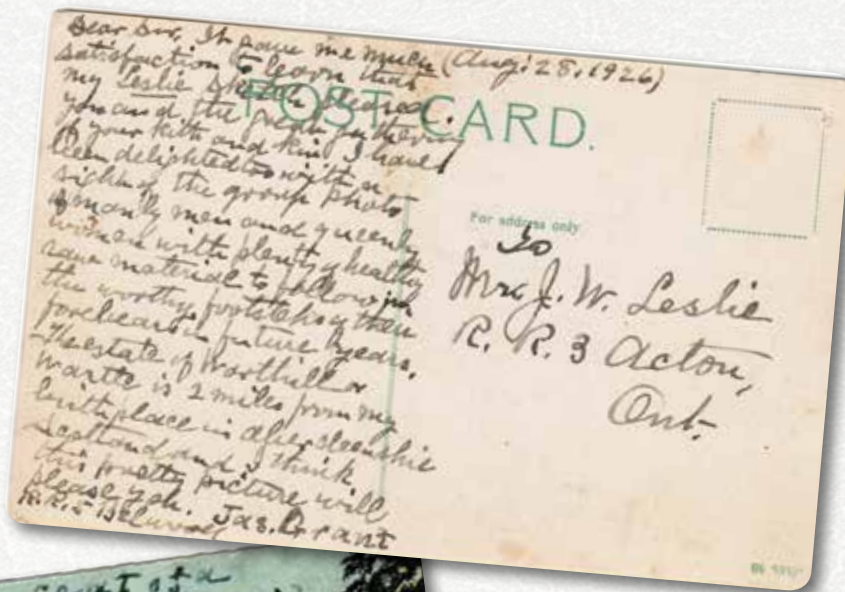 Dear Sir, It gave me much (Aug. 28, 1926)
satisfaction to learn that
my Leslie sketch pleased
you and the great gathering
of your kith and kin. I have
been delighted too with a
sight of the group photo
of manly men and queenly
women with plenty of healthy
material to follow in
the worthy footsteps of their
forebears in future years.
The estate of Warthill or
Wartle is 2 miles from my
birthplace in Aberdeenshire
Scotland and I think
this pretty picture will
please you. Jas. Grant
R.R.
POST CARD.
For address only
To
J. W. Leslie
R. R. 3 Acton,
Ont.